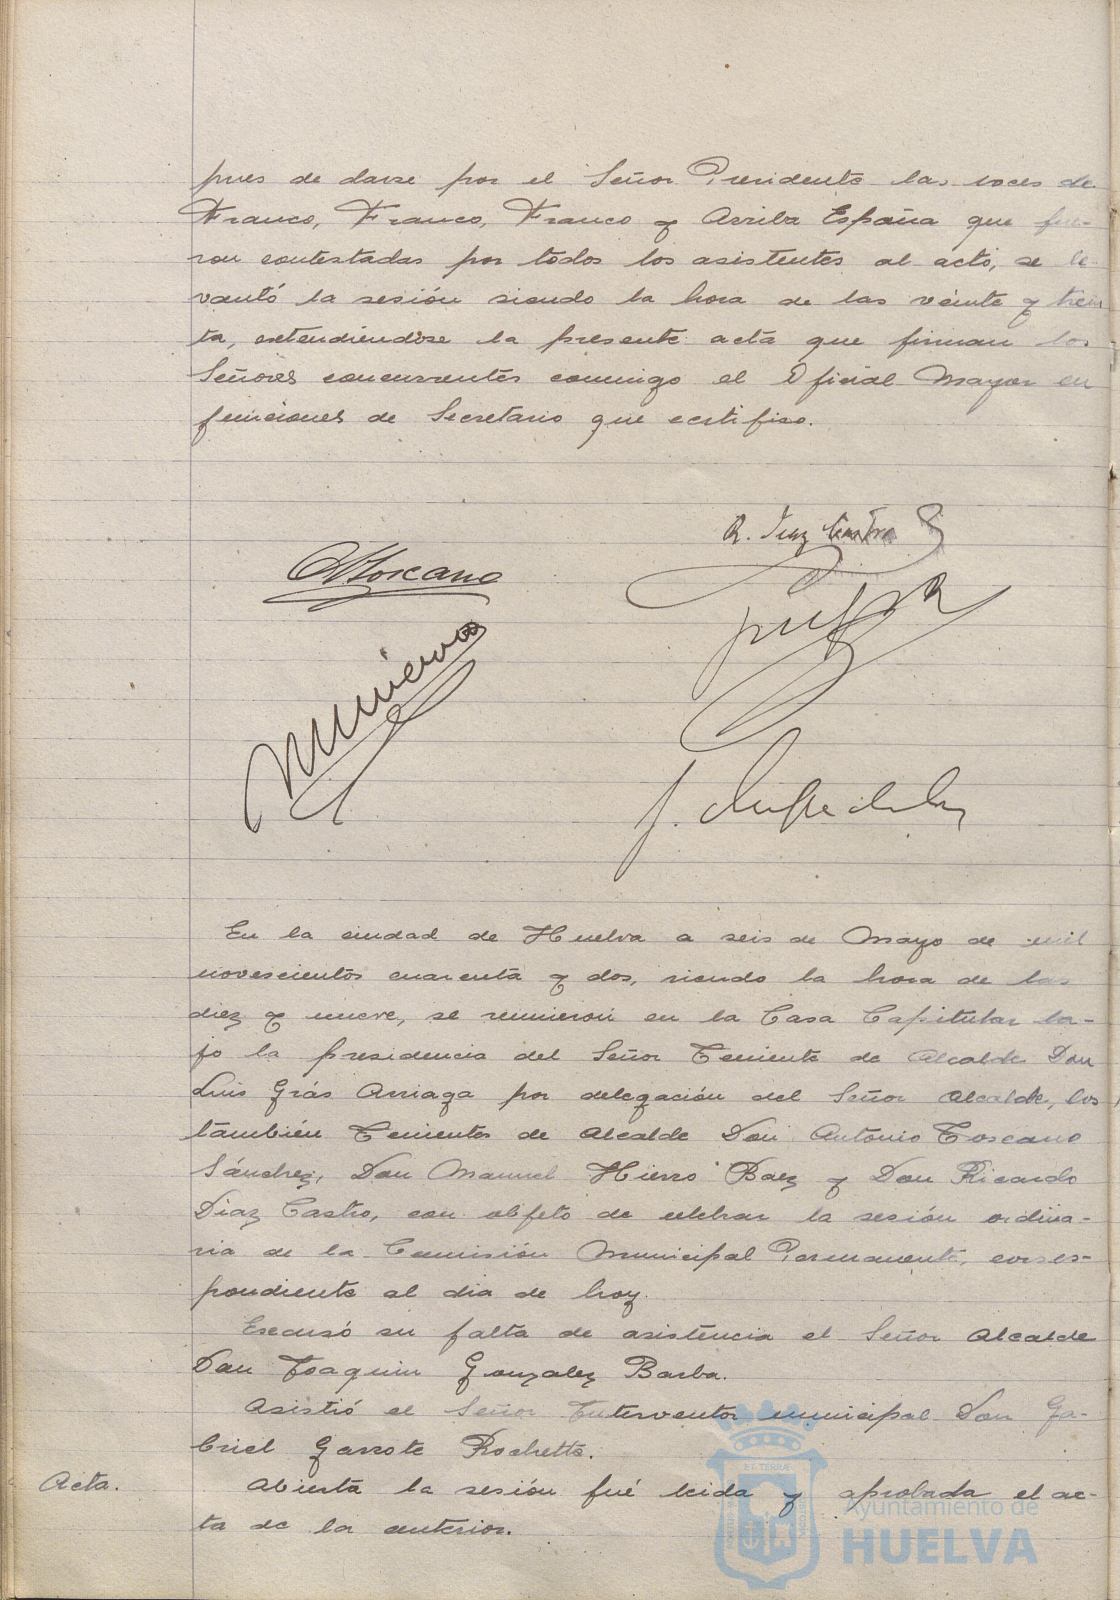 pues de darse por el Señor Presidente las voces de
Franco, Franco, Franco y Arriba España que fue-
ron contestadas por todos los asistentes al acto, se le-
vantó la sesión siendo la hora de las veinte y trein
ta, extendiéndose la presente acta que firman los
Señores concurrentes conmigo el Oficial Mayor en
funciones de Secretario que certifico.
R. Diaz Castro
AToscano
En la ciudad de Huelva a seis de Mayo de mil
novescientos cuarenta y dos, siendo la hora de las
diez y nueve, se reunieron en la Casa Capitular ba-
jo la presidencia del Señor Teniente de Alcalde Don
Luis Grás Arriaga por delegación del Señor Alcalde, los
también Tenientes de Alcalde Don Antonio Toscano
Sánchez, Don Manuel Hierro Baez y Don Ricardo
Diaz Castro, con objeto de celebrar la sesión ordina-
ria de la Comisión Municipal Permanente, corres-
pondiente al dia de hoy.
Escusó su falta de asistencia el Señor Alcalde
Don Joaquin Gonzalez Barba.
Asistió el Señor Interventor municipal Don Ga-
briel Garrote Rochette.
Acta.
Abierta la sesión fué leida y aprobada el ac-
ta de la anterior.
Ayuntamiento de
HUELVA